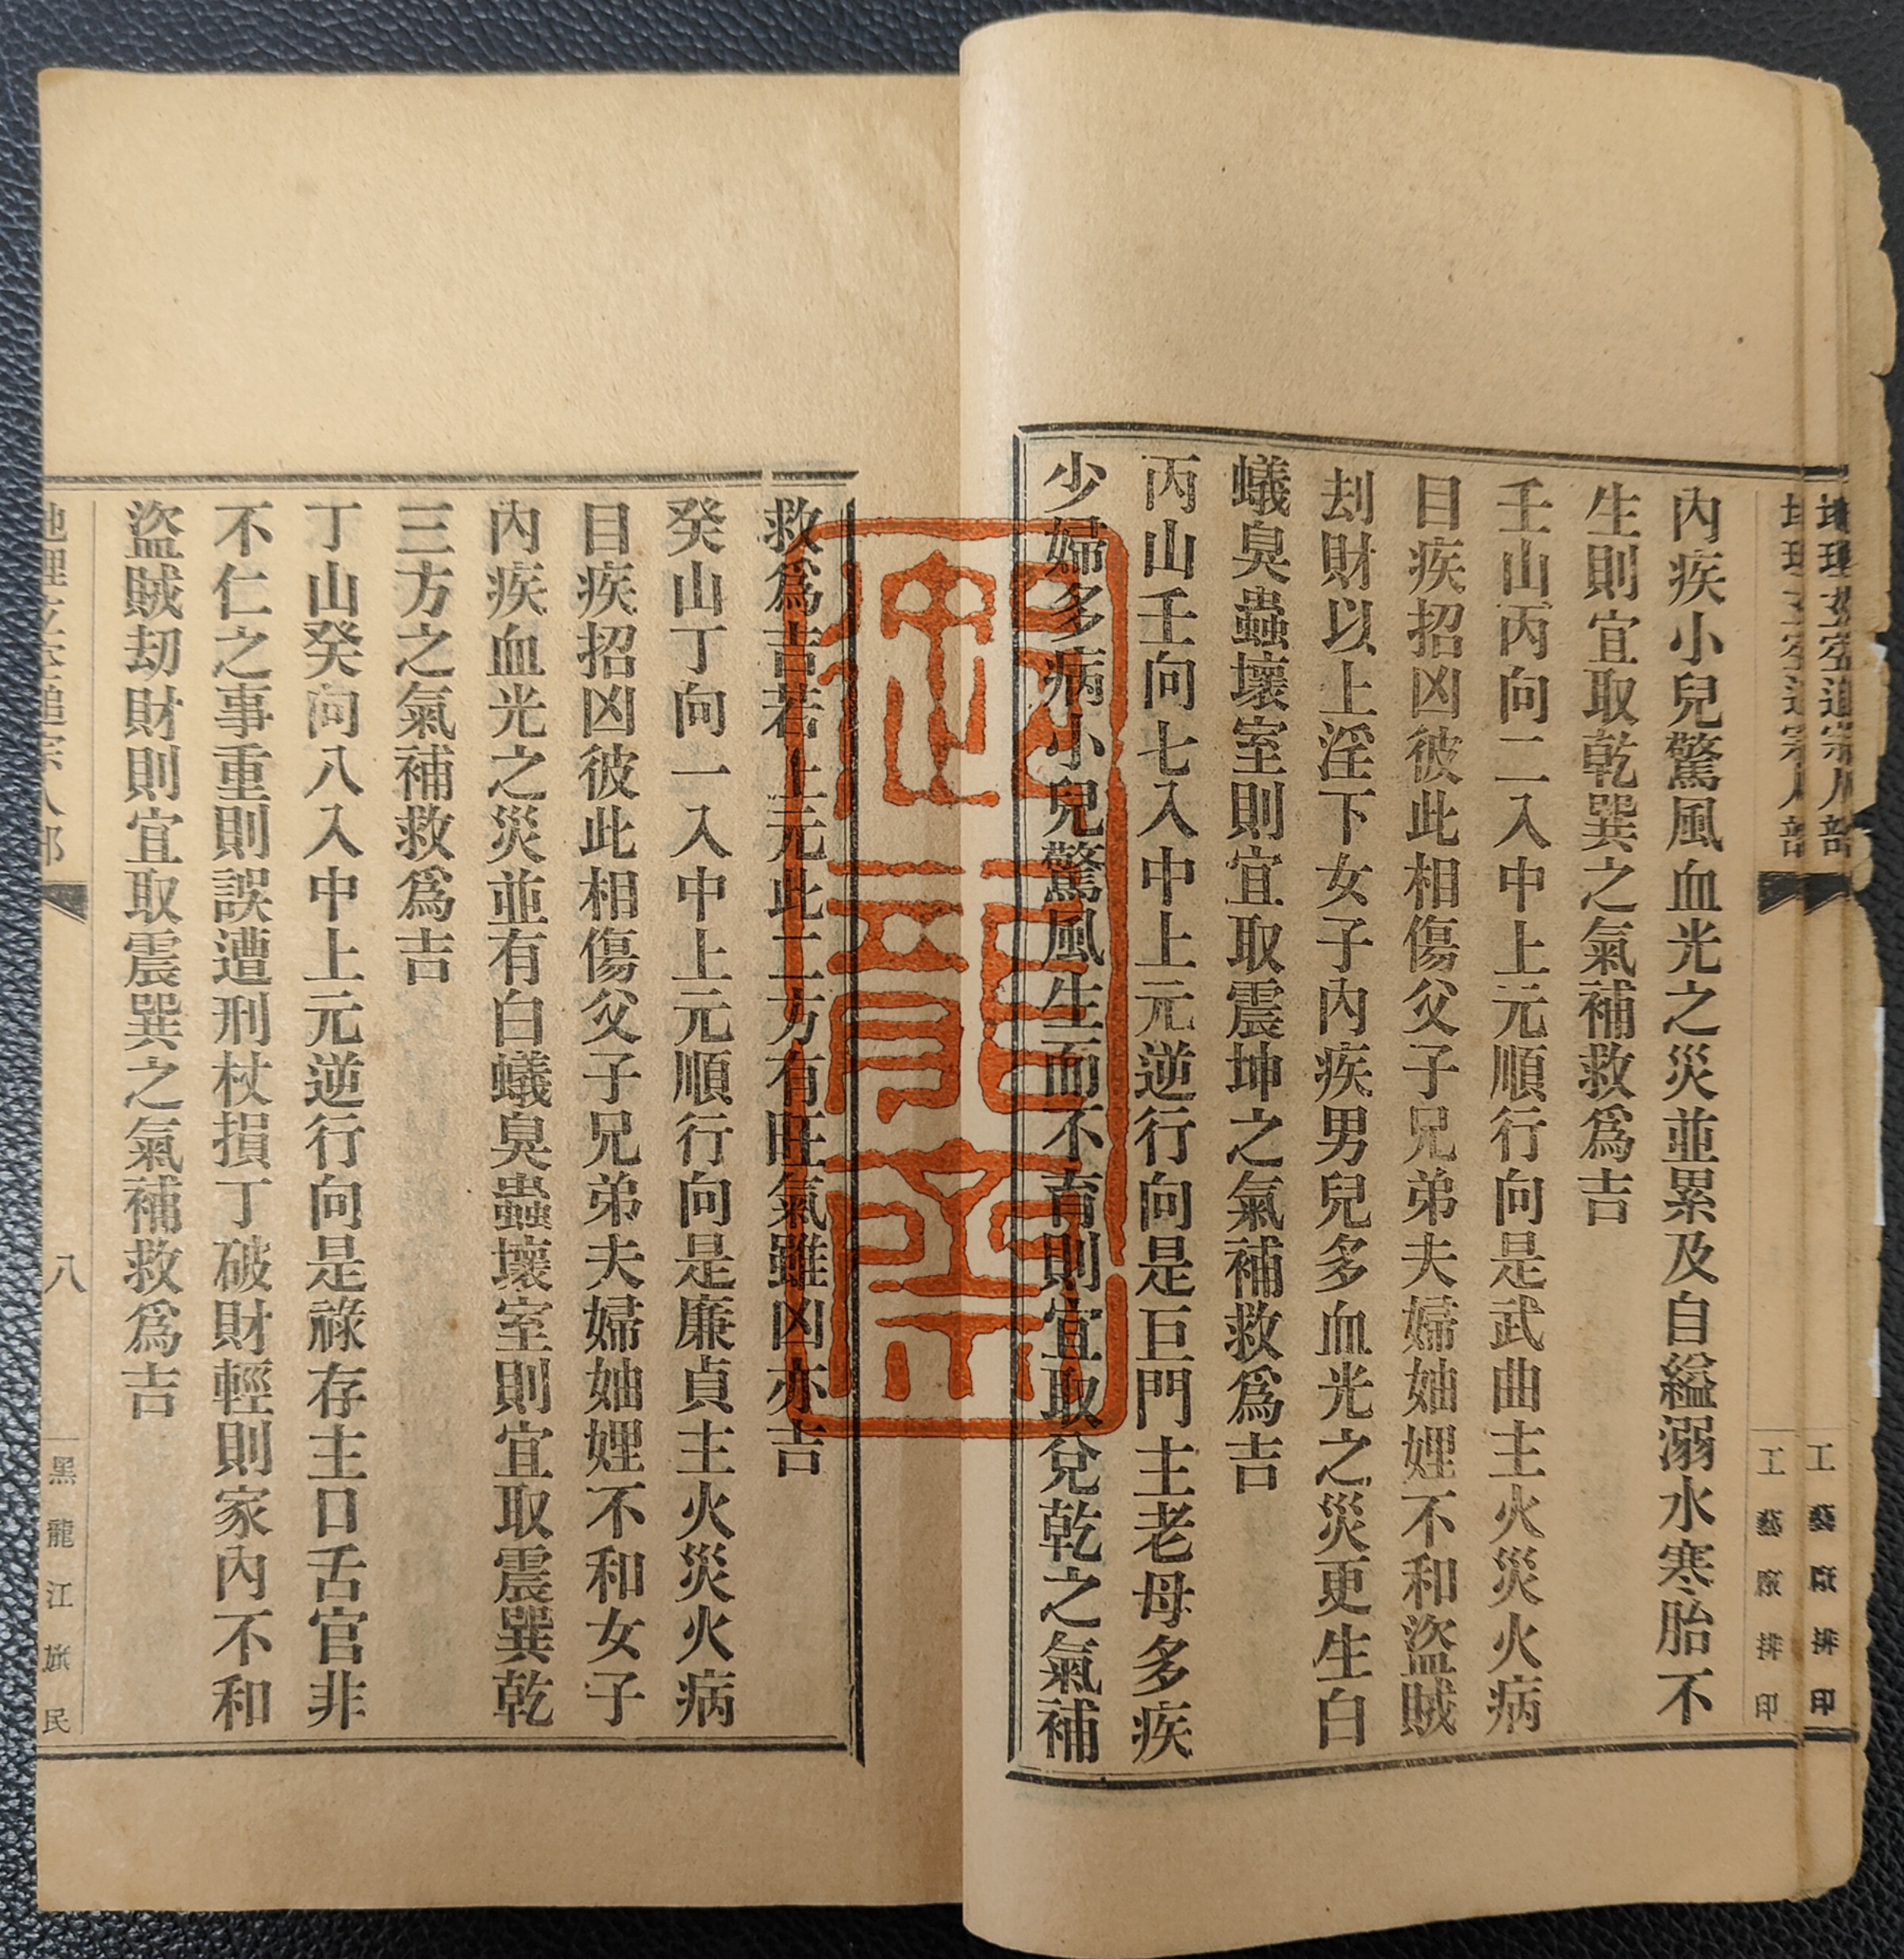 內疾小兒驚風血光之災並累及自縊溺水寒胎不
生則宜取乾巽之氣補救爲吉
壬山丙向二入中上元順行向是武曲主火災火病
目疾招凶彼此相傷父子兄弟夫婦妯娌不和盜賊
刦財以上淫下女子內疾男兒多血光之災更生白
蟻臭蟲壞室則宜取震坤之氣補救爲吉
丙山壬向七入中上元逆行向是巨門主老母多疾
少婦多病小兒驚風生而不育則宜取兌乾之氣補
救爲吉若上元此二方有旺氣雖凶亦吉
癸山丁向一入中上元順行向是廉貞主火災火病
目疾招凶彼此相傷父子兄弟夫婦妯娌不和女子
內疾血光之災並有白蟻臭蟲壞室則宜取震巽乾
三方之氣補救爲吉
丁山癸向八入中上元逆行向是祿存主口舌官非
不仁之事重則誤遭刑杖損丁破財輕則家內不和
盜賊劫財則宜取震巽之氣補救爲吉
八
黑龍江旗民
工藝廠排印
工藝廠排印